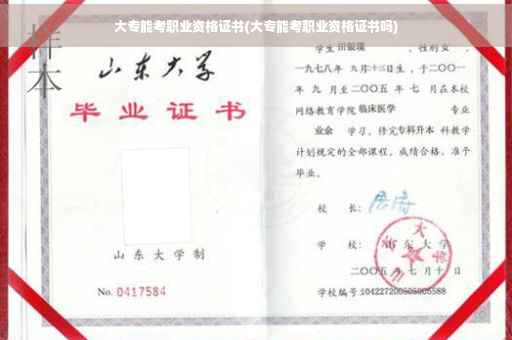 大专能考职业资格证书(大专能考职业资格证书吗)
样
本
山东大学
毕业证书
山东大学制
No. 0417584
学生 田银瑞 , 性别 女 ,
一九七八年 九月十三日生, 于二〇〇一
年 九 月至二〇〇五 年 七 月在本校
网络教育学院 临床医学 专业
业余 学习, 修完专科升本 科教学
计划规定的全部课程, 成绩合格, 准予
毕业。
校 长:
学 校: 山东大学
二〇〇五 年 七 月 十 日
学校编号: